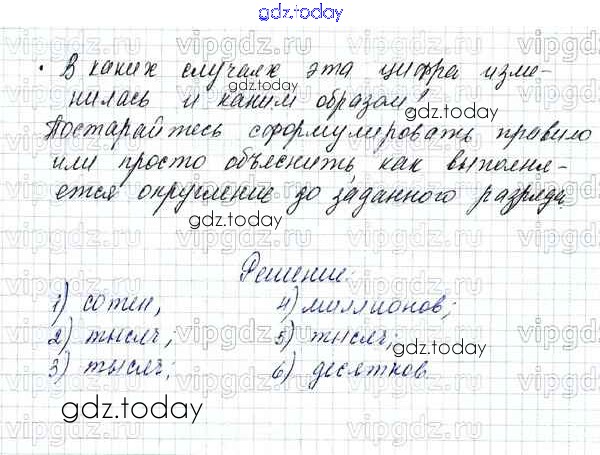 gdz.today
• В каких случаях эта цифра изме-
нилась и каким образом?
Постарайтесь сформулировать правило
или просто объяснить, как выполня-
ется округление до заданного разряда.
Решение:
1) сотен, 4) миллионов;
2) тысяч; 5) тысяч;
3) тысяч; 6) десятков
gdz.today
gdz.today
gdz.today
gdz.today
gdz.today
vipgdz.ru